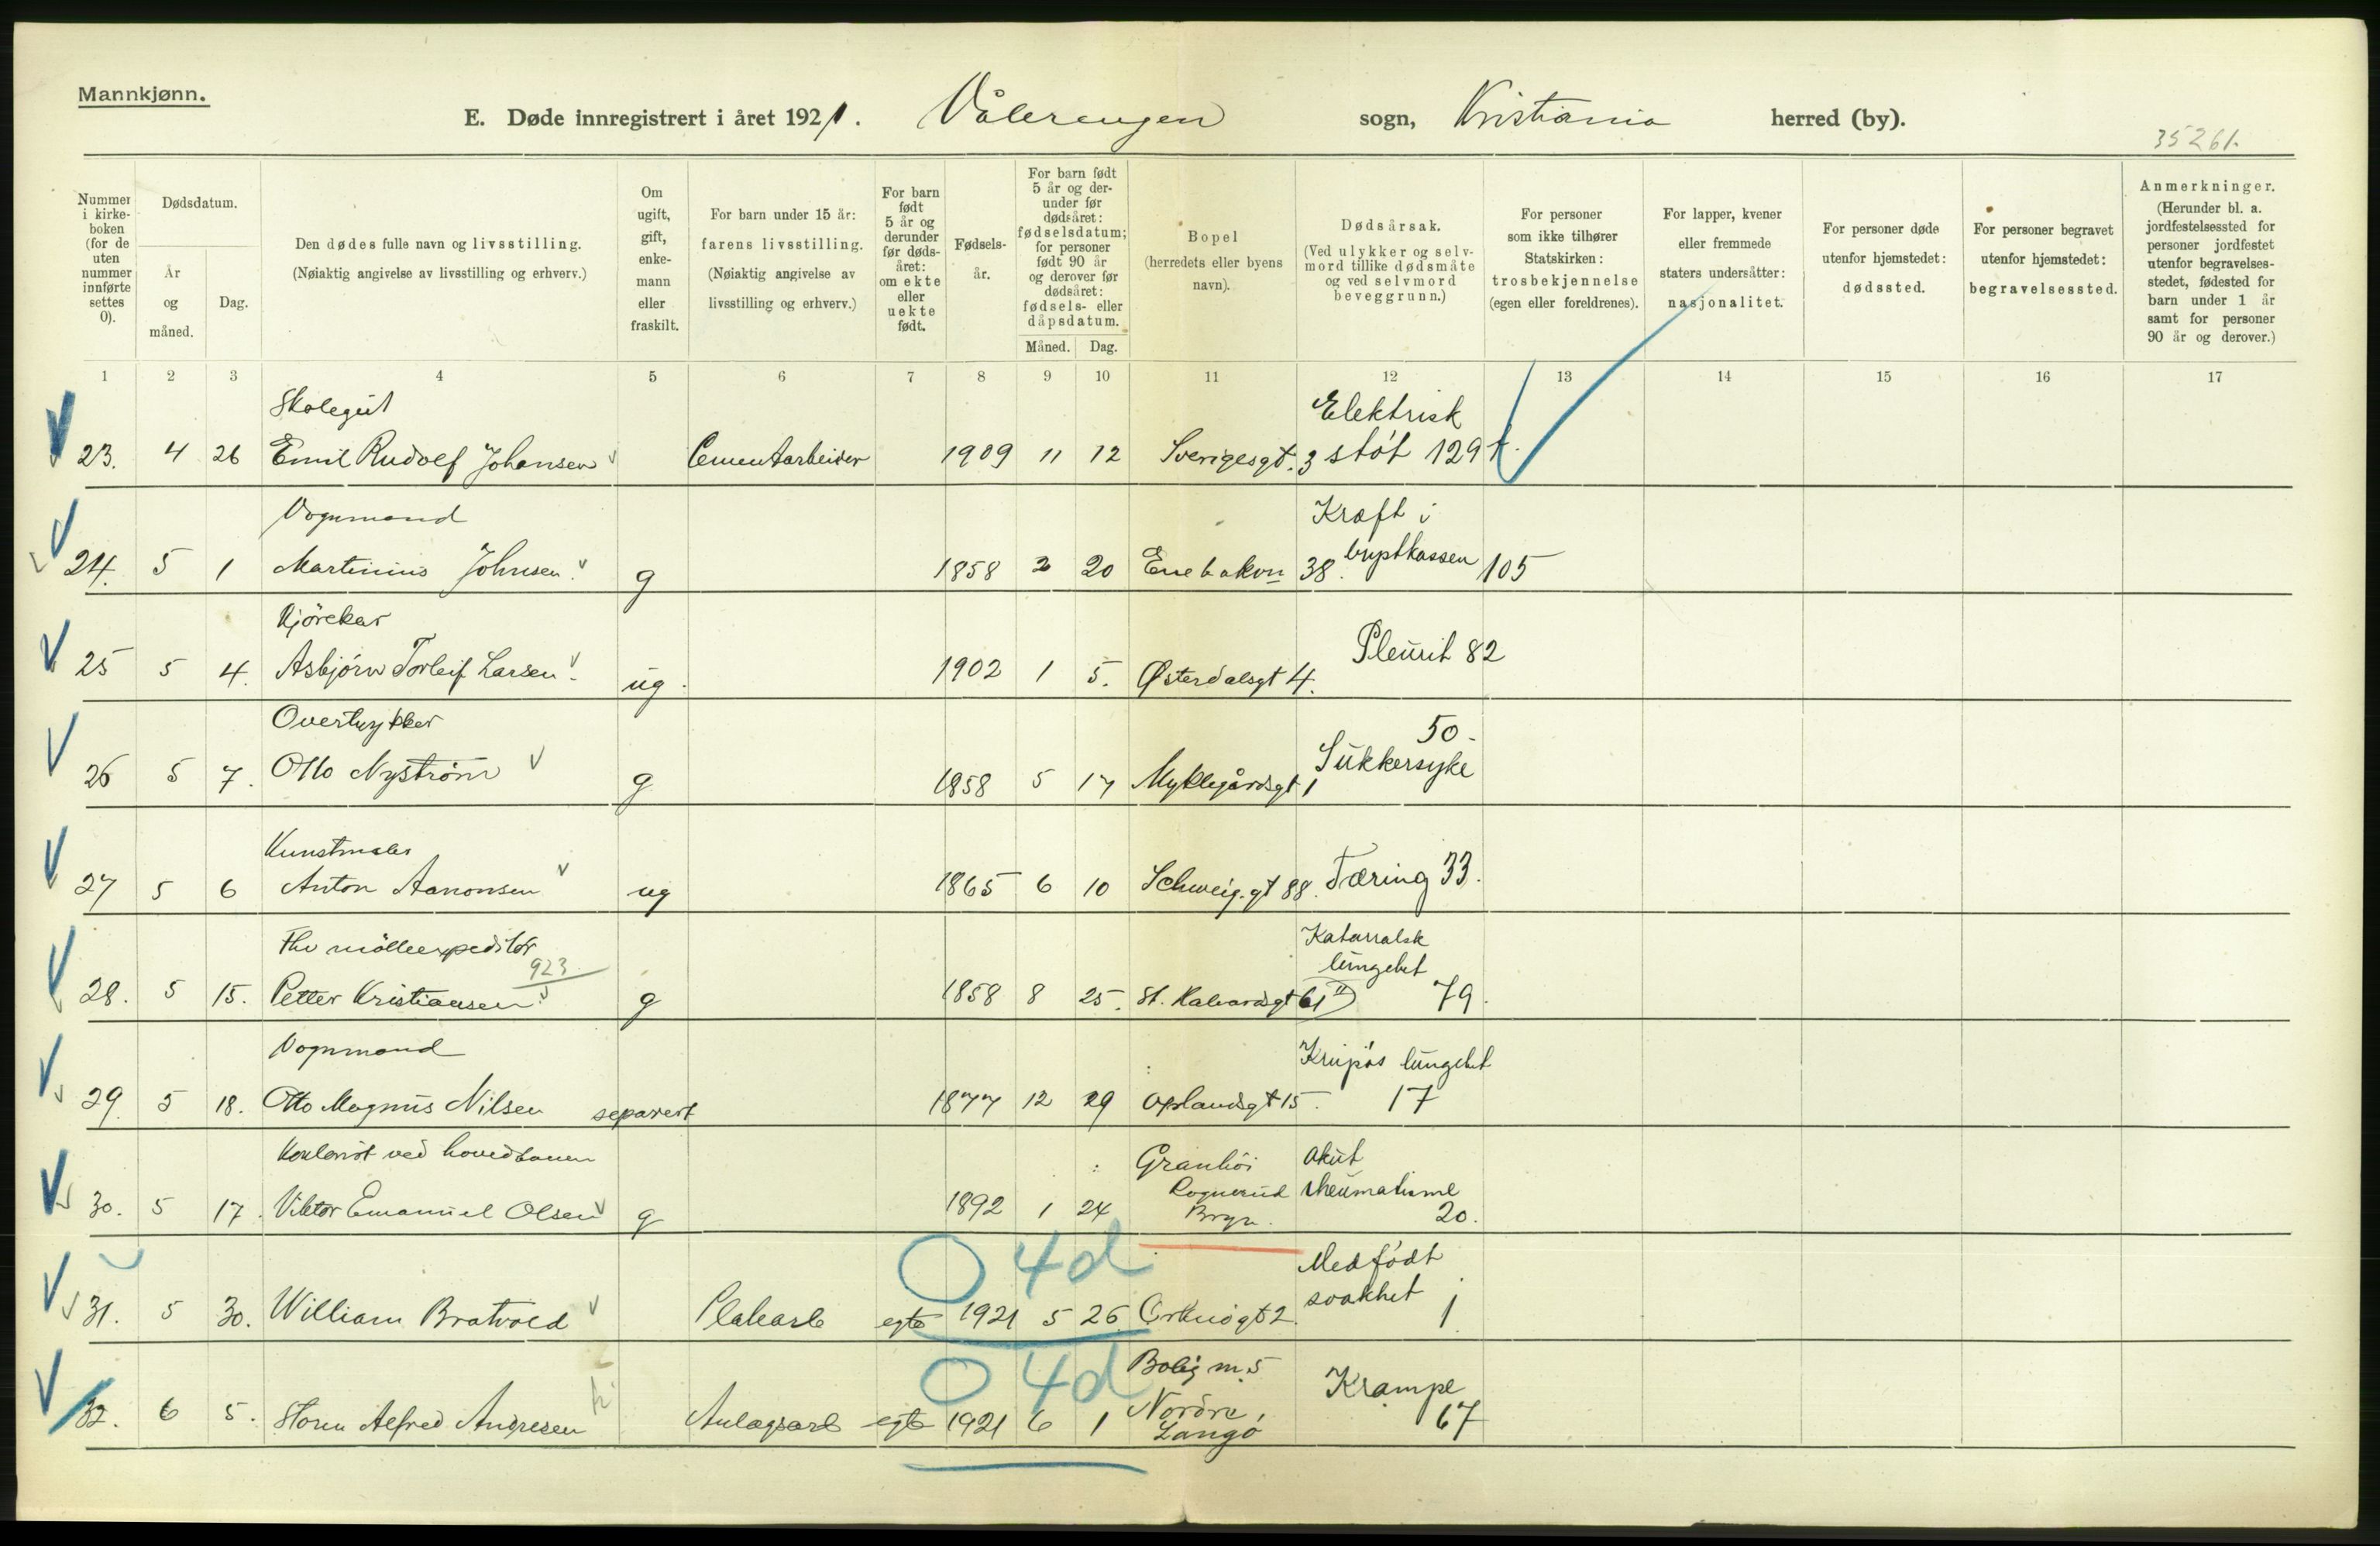 Mannkjønn.
E. Døde innregistrert i året 1921. Vålerengen sogn, Kristiania herred (by).
35261.
Nummer i kirke- boken (for de uten nummer innførte settes 0).
Dødsdatum.
År og måned.
Dag.
Den dødes fulle navn og livsstilling.
(Nøiaktig angivelse av livsstilling og erhverv.)
Om ugift, gift, enke- mann eller fraskilt.
For barn under 15 år: farens livsstilling.
(Nøiaktig angivelse av livsstilling og erhverv.)
For barn født 5 år og derunder før døds- året: om ekte eller uekte født.
Fødsels- år.
For barn født 5 år og der- under før dødsåret: fødselsdatum; for personer født 90 år og derover før dødsåret: fødsels- eller dåpsdatum.
Måned. Dag.
Bopel (herredets eller byens navn).
Dødsårsak.
(Ved ulykker og selv- mord tillike dødsmåte og ved selvmord beveggrunn.)
For personer som ikke tilhører Statskirken: trosbekjennelse (egen eller foreldrenes).
For lapper, kvener eller fremmede staters undersåtter: nasjonalitet.
For personer døde utenfor hjemstedet: dødssted.
For personer begravet utenfor hjemstedet: begravelsessted.
Anmerkninger.
(Herunder bl. a. jordfestelsessted for personer jordfestet utenfor begravelses- stedet, fødested for barn under 1 år samt for personer 90 år og derover.)
1 2 3 4 5 6 7 8 9 10 11 12 13 14 15 16 17
Skolegut Elektrisk
23. 4 26 Emil Rudolf Johansen Cementarbeider 1909 11 12 Sverigesgt. 3 støt 129
Vognmand Kræft i
24. 5 1 Martinius Johnsen g 1858 2 20 Enebakvn 38. brystkassen 105
Kjörekar
25 5 4. Asbjörn Torleif Larsen ug. 1902 1 5. Østerdalsgt 4. Pleurit 82
50-
26 5 7. Otto Nyström g 1858 5 17 Myklegårdsgt 1 Sukkersyke
Kunstmaler
27 5 6 Anton Aanonsen ug 1865 6 10 Schweig.gt 88. Tæring 33.
Fhv mölleexpeditör Katarralsk
923 lungebet
28. 5 15. Petter Kristiansen g 1858 8 25. St. Halvardsgt 61 II 79.
Vognmand Krupøs lungebet
29. 5 18. Otto Magnus Nilsen separert 1877 12 29 Oplandsgt 15. 17
Kontorist ved hovedbanen Granhöi Akut
Rognerud rheumatisme
30. 5 17. Viktor Emanuel Olsen g 1892 1 24 Bryn. 20.
0 4d Medfødt
31. 5 30. William Bratvold egte 1921 5 26 Orknögt 2. svakhet 1
0 4d Bolig m. 5
32. 6 5. Alfred Andresen Anlægsarb egte 1921 6 1 Nordre Langø Krampe 67